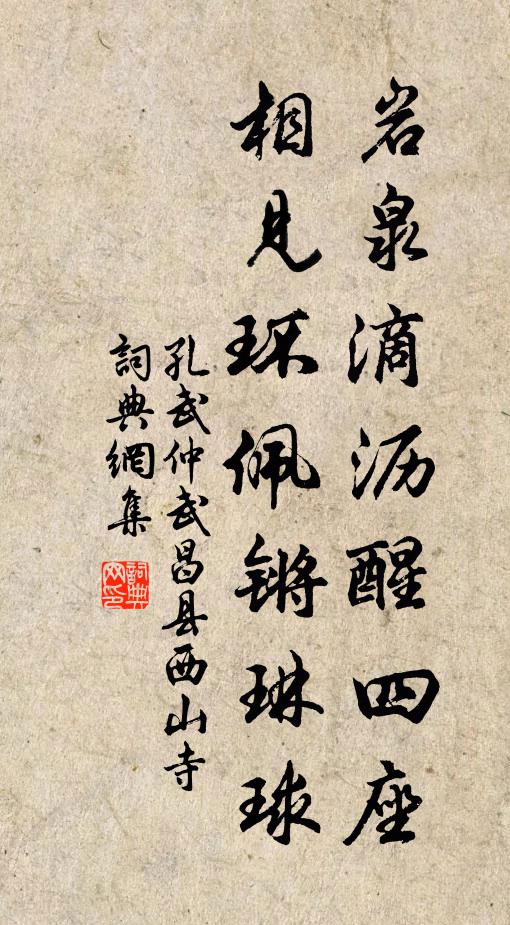 岩泉滴沥醒四座
相见环佩锵琳球
孔武仲武昌县西山寺
詞典網集
詞典网印